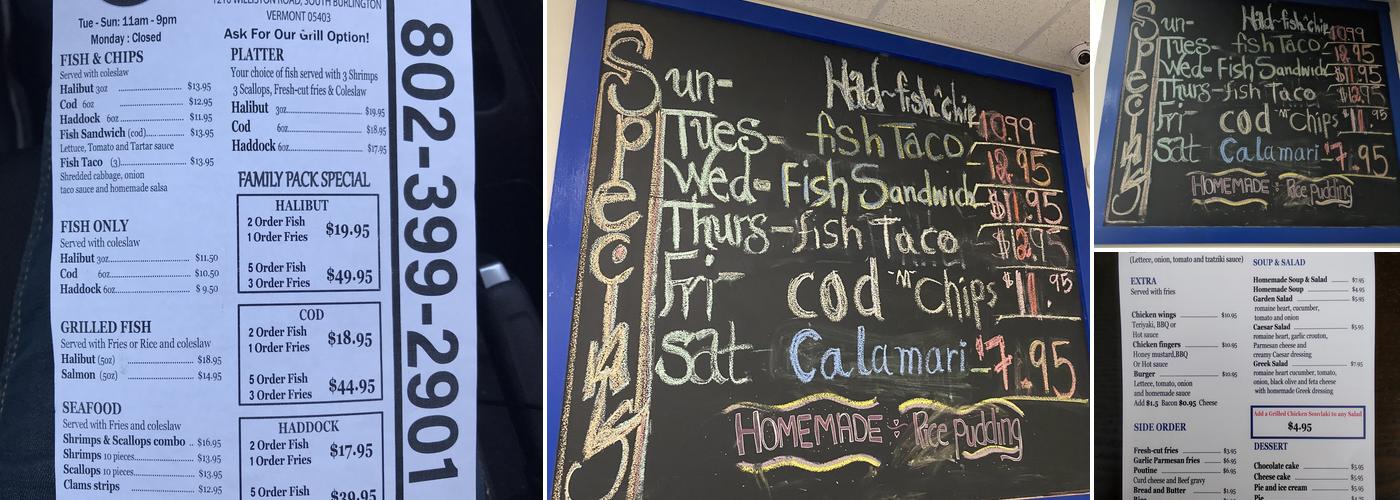 1210 WILLISTON ROAD, SOUTH BURLINGTON
VERMONT 05403
Tue - Sun: 11am - 9pm
Monday : Closed
Ask For Our Grill Option!
FISH & CHIPS
Served with coleslaw
Halibut 3oz $13.95
Cod 6oz $12.95
Haddock 6oz $11.95
Fish Sandwich (cod) $13.95
Lettuce, Tomato and Tartar sauce
Fish Taco (3) $13.95
Shredded cabbage, onion
taco sauce and homemade salsa
FISH ONLY
Served with coleslaw
Halibut 3oz $11.50
Cod 6oz $10.50
Haddock 6oz $ 9.50
GRILLED FISH
Served with Fries or Rice and coleslaw
Halibut (5oz) $18.95
Salmon (5oz) $14.95
SEAFOOD
Served with Fries and coleslaw
Shrimps & Scallops combo .. $16.95
Shrimps 10 pieces $13.95
Scallops 10 pieces $13.95
Clams strips $12.95
PLATTER
Your choice of fish served with 3 Shrimps
3 Scallops, Fresh-cut fries & Coleslaw
Halibut 3oz $19.95
Cod 6oz $18.95
Haddock 6oz $17.95
FAMILY PACK SPECIAL
HALIBUT
2 Order Fish
1 Order Fries $19.95
5 Order Fish
3 Order Fries $49.95
COD
2 Order Fish
1 Order Fries $18.95
5 Order Fish
3 Order Fries $44.95
HADDOCK
2 Order Fish
1 Order Fries $17.95
5 Order Fish $39.95
802-399-2901
Specials
Sun- Had-fish n chip 10.99
Tues- fish Taco 12.95
Wed- Fish Sandwich $11.95
Thurs-fish Taco $12.95
Fri- cod "N" Chips $11.95
Sat Calamari- $7.95
HOMEMADE Rice pudding
Specials
Sun- Had-fish n chip 10.99
Tues- fish Taco 12.95
Wed- Fish Sandwich $11.95
Thurs-fish Taco $12.95
Fri- cod "N" Chips $11.95
Sat Calamari- $7.95
HOMEMADE Rice pudding
(Lettece, onion, tomato and tzatziki sauce)
EXTRA
Served with fries
Chicken wings $10.95
Teriyaki, BBQ or
Hot sauce
Chicken fingers $10.95
Honey mustard,BBQ
Or Hot sauce
Burger $10.95
Lettece, tomato, onion
and homemade sauce
Add $1.5 Bacon $0.95 Cheese
SIDE ORDER
Fresh-cut fries $3.95
Garlic Parmesan fries $6.95
Poutine $6.95
Curd cheese and Beef gravy
Bread and Butter $1.95
SOUP & SALAD
Homemade Soup & Salad $7.95
Homemade Soup $4.95
Garden Salad $5.95
romaine heart, cucumber,
tomato and onion
Caesar Salad $5.95
romaine heart, garlic crouton,
Parmesan cheese and
creamy Caesar dressing
Greek Salad $7.95
romaine heart cucumber, tomato,
onion, black olive and feta cheese
with homemade Greek dressing
Add a Grilled Chicken Souvlaki to any Salad
$4.95
DESSERT
Chocolate cake $5.95
Cheese cake $5.95
Pie and ice cream $5.95
Pie